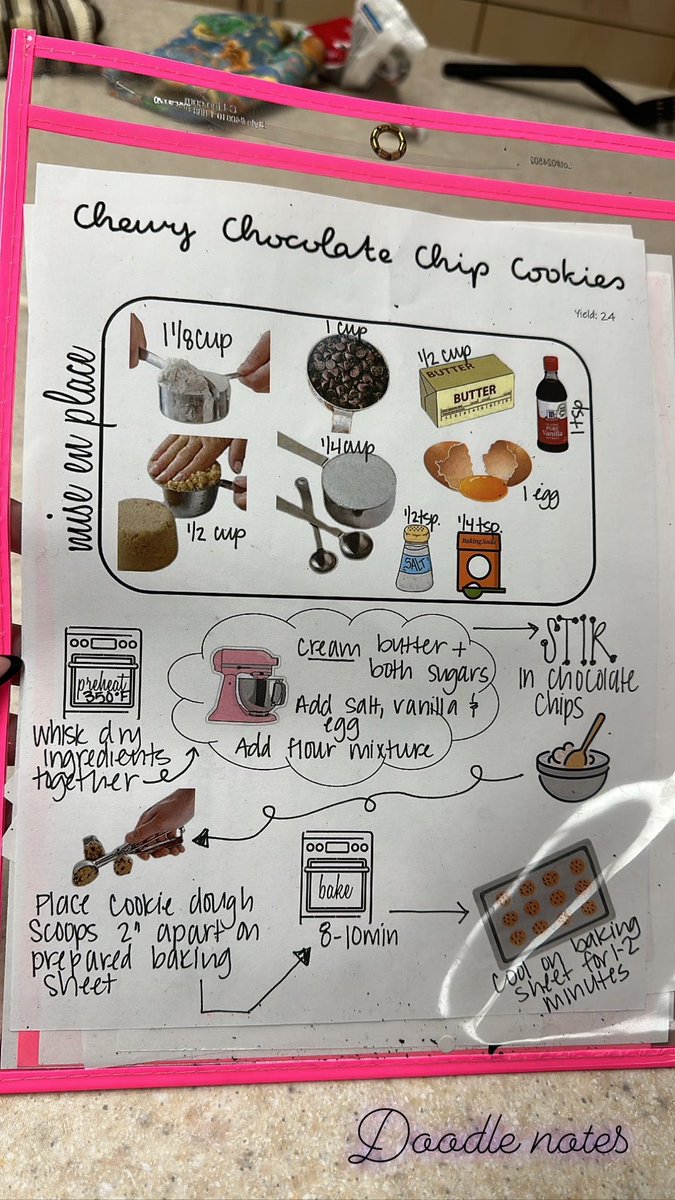 Chewy Chocolate Chip Cookies
Yield: 24
mise en place
1 1/8 cup
1 cup
1/2 cup
BUTTER
BUTTER
PURE
Vanilla
1 tsp
1/2 cup
1/4 cup
1 egg
1/2 tsp.
SALT
1/4 tsp.
Baking Soda
preheat
350°F
Whisk dry
ingredients
together
cream butter +
both sugars
Add salt, vanilla &
egg
Add flour mixture
STIR
in chocolate
chips
Place cookie dough
scoops 2" apart on
prepared baking
sheet
bake
8-10min
cool on baking
sheet for 1-2
minutes
Doodle notes